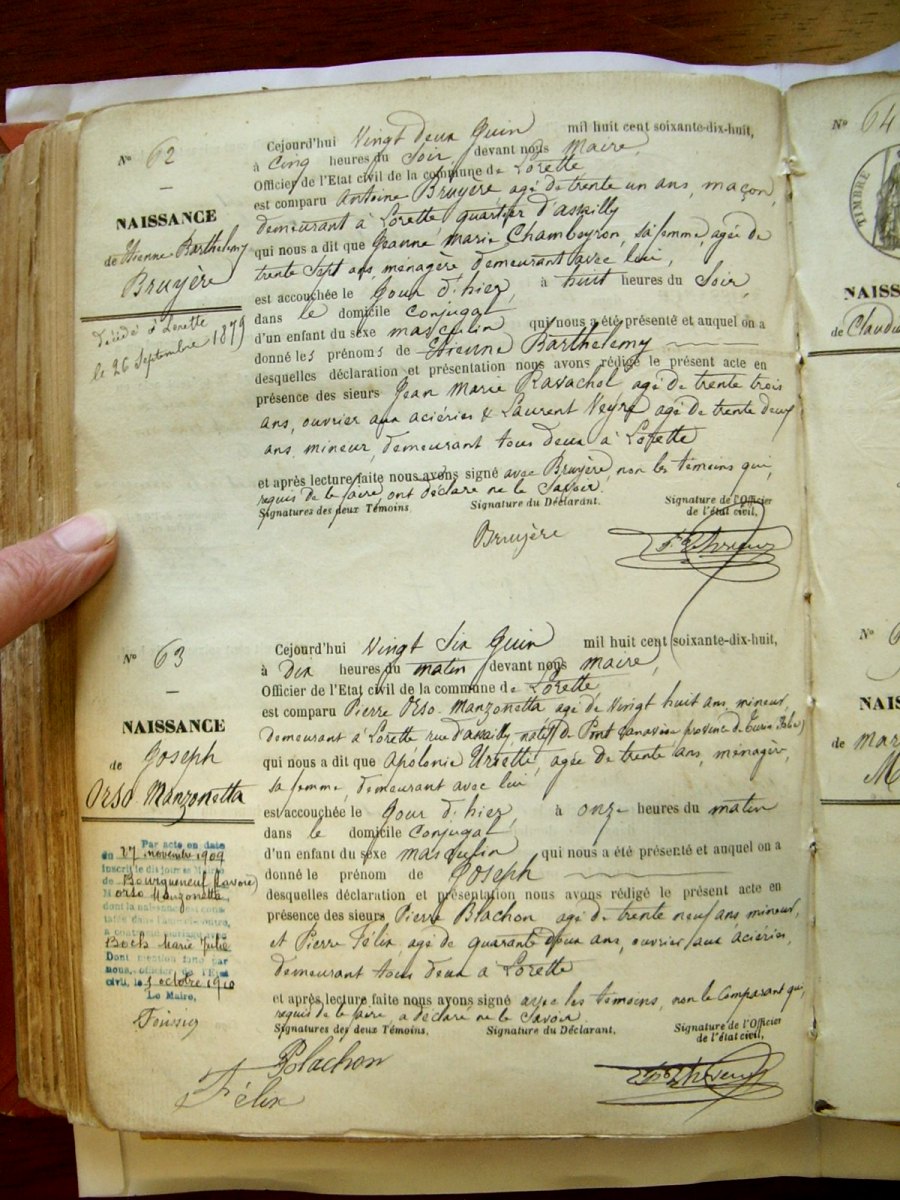 N° 62
NAISSANCE
de Etienne Barthelemy
Bruyère
Décédé à Lorette
le 26 Septembre 1879
Cejourd'hui Vingt deux Juin mil huit cent soixante-dix-huit,
à Cinq heures du Soir devant nous Maire,
Officier de l'Etat civil de la commune de Lorette
est comparu Antoine Bruyère, agé de trente un ans, maçon,
demeurant à Lorette, quartier d'assailly
qui nous a dit que Jeanne Marie Chambeyron, sa femme, agée de
trente sept ans, ménagère, demeurant avec lui,
est accouchée le Jour d'hier, à huit heures du Soir,
dans le domicile Conjugal
d'un enfant du sexe masculin qui nous a été présenté et auquel on a
donné les prénoms de Etienne Barthelemy
desquelles déclaration et présentation nous avons rédigé le présent acte en
présence des sieurs Jean Marie Ravachol agé de trente trois
ans, ouvrier aux aciéries & Laurent Neyre agé de trente deux
ans, mineur, demeurant tous deux à Lorette
et après lecture faite nous avons signé avec Bruyère, non les témoins qui,
requis de le faire, ont déclaré ne le Savoir.
Signatures des deux Témoins. Signature du Déclarant. Signature de l'Officier
de l'état civil,
Bruyère
N° 63
NAISSANCE
de Joseph
Orso Manzonetta
Par acte en date
du 27 novembre 1909
inscrit le dit jour à la Mairie
de Bourgneuf (Savoie)
M Orso Manzonetta,
dont la naissance est cons-
tatée dans l'acte ci-contre,
a contracté mariage avec
Boch Marie Julie
Dont mention faite par
nous, officier de l'Etat
civil, le 3 octobre 1910
Le Maire,
Cejourd'hui Vingt Six Juin mil huit cent soixante-dix-huit,
à Dix heures du matin devant nous maire,
Officier de l'Etat civil de la commune de Lorette
est comparu Pierre Orso-Manzonetta agé de Vingt huit ans, mineur,
demeurant à Lorette rue d'assailly, natif de Pont Canavèse province de Turin Italie)
qui nous a dit que Apolonie Ursette, agée de trente ans, ménagère,
sa femme, demeurant avec lui
est accouchée le Jour d'hier, à onze heures du matin
dans le domicile Conjugal
d'un enfant du sexe masculin qui nous a été présenté et auquel on a
donné le prénom de Joseph
desquelles déclaration et présentation nous avons rédigé le présent acte en
présence des sieurs Pierre Blachon agé de trente neuf ans, mineur,
et Pierre Félix, agé de quarante deux ans, ouvrier aux aciéries,
demeurant tous deux à Lorette
et après lecture faite nous avons signé avec les témoins, non le Comparant qui,
requis de le faire, a déclaré ne le Savoir.
Signatures des deux Témoins. Signature du Déclarant. Signature de l'Officier
de l'état civil,
Blachon
Félix
N° 64
TIMBRE
NAISS
de Claudi
N°
NAIS
de Mar
M